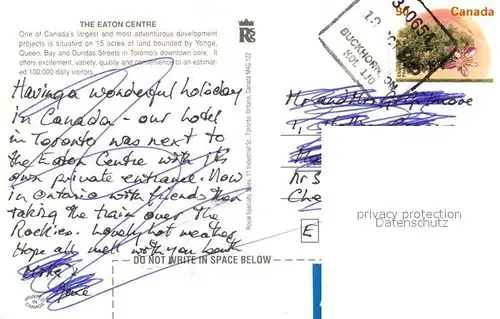 THE EATON CENTRE
One of Canada's largest and most adventurous development
projects is situated on 15 acres of land bounded by Yonge,
Queen, Bay and Dundas Streets in Toronto's downtown core. It
offers excitement, variety, quality and convenience to an estimat-
ed 100,000 daily visitors.
Having a wonderful holiday
in Canada - our hotel
in Toronto was next to
the Eaton Centre with its
own private entrance. Now
in Ontario with friends then
taking the train over the
Rockies. Lovely hot weather
Hope all well with you both
DO NOT WRITE IN SPACE BELOW
PRINTED IN CANADA
Royal Specialty Sales, 11 Industrial St., Toronto, Ontario, Canada M4G 1Z2
Canada
BUCKHORN, ON
K0L 1J0
Mr and Mrs
E
privacy protection
Datenschutz